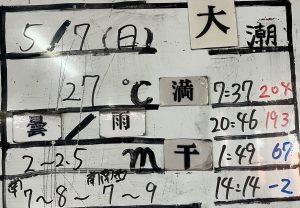 5/7(日) 大潮
27 ℃ 満 7:37 204
曇/雨 20:46 193
2~2.5 m 干 1:49 67
南 7~8~ 7~9 14:14 -2